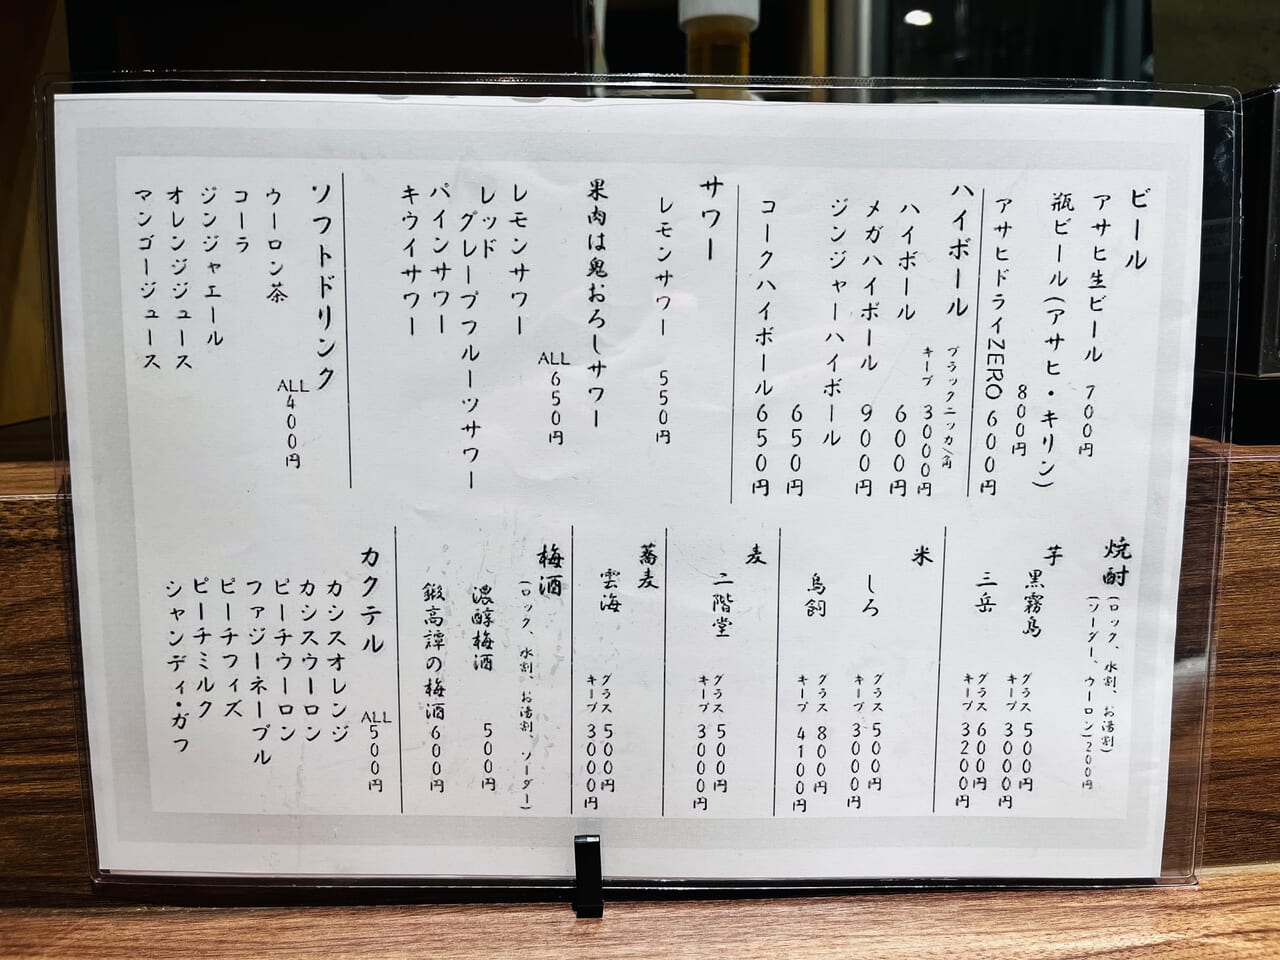 ビール
アサヒ生ビール 700円
瓶ビール(アサヒ・キリン)
800円
アサヒドライZERO 600円
ハイボール
ブラックニッカ/角
キープ 3000円
ハイボール 600円
メガハイボール 900円
ジンジャーハイボール
650円
コークハイボール 650円
サワー
レモンサワー 550円
果肉は鬼おろしサワー
ALL 650円
レモンサワー
レッド
グレープフルーツサワー
パインサワー
キウイサワー
ソフトドリンク
ALL 400円
ウーロン茶
コーラ
ジンジャエール
オレンジジュース
マンゴージュース
焼酎 (ロック、水割、お湯割)
(ソーダー、ウーロン)200円
芋
黒霧島 グラス 500円
キープ 3000円
三岳 グラス 600円
キープ 3200円
米
しろ グラス 500円
キープ 3000円
鳥飼 グラス 800円
キープ 4100円
麦
二階堂 グラス 500円
キープ 3000円
蕎麦
雲海 グラス 500円
キープ 3000円
梅酒
(ロック、水割、お湯割、ソーダー)
濃醇梅酒 500円
鍛高譚の梅酒 600円
カクテル
ALL 500円
カシスオレンジ
カシスウーロン
ピーチウーロン
ファジーネーブル
ピーチフィズ
ピーチミルク
シャンディ・ガフ